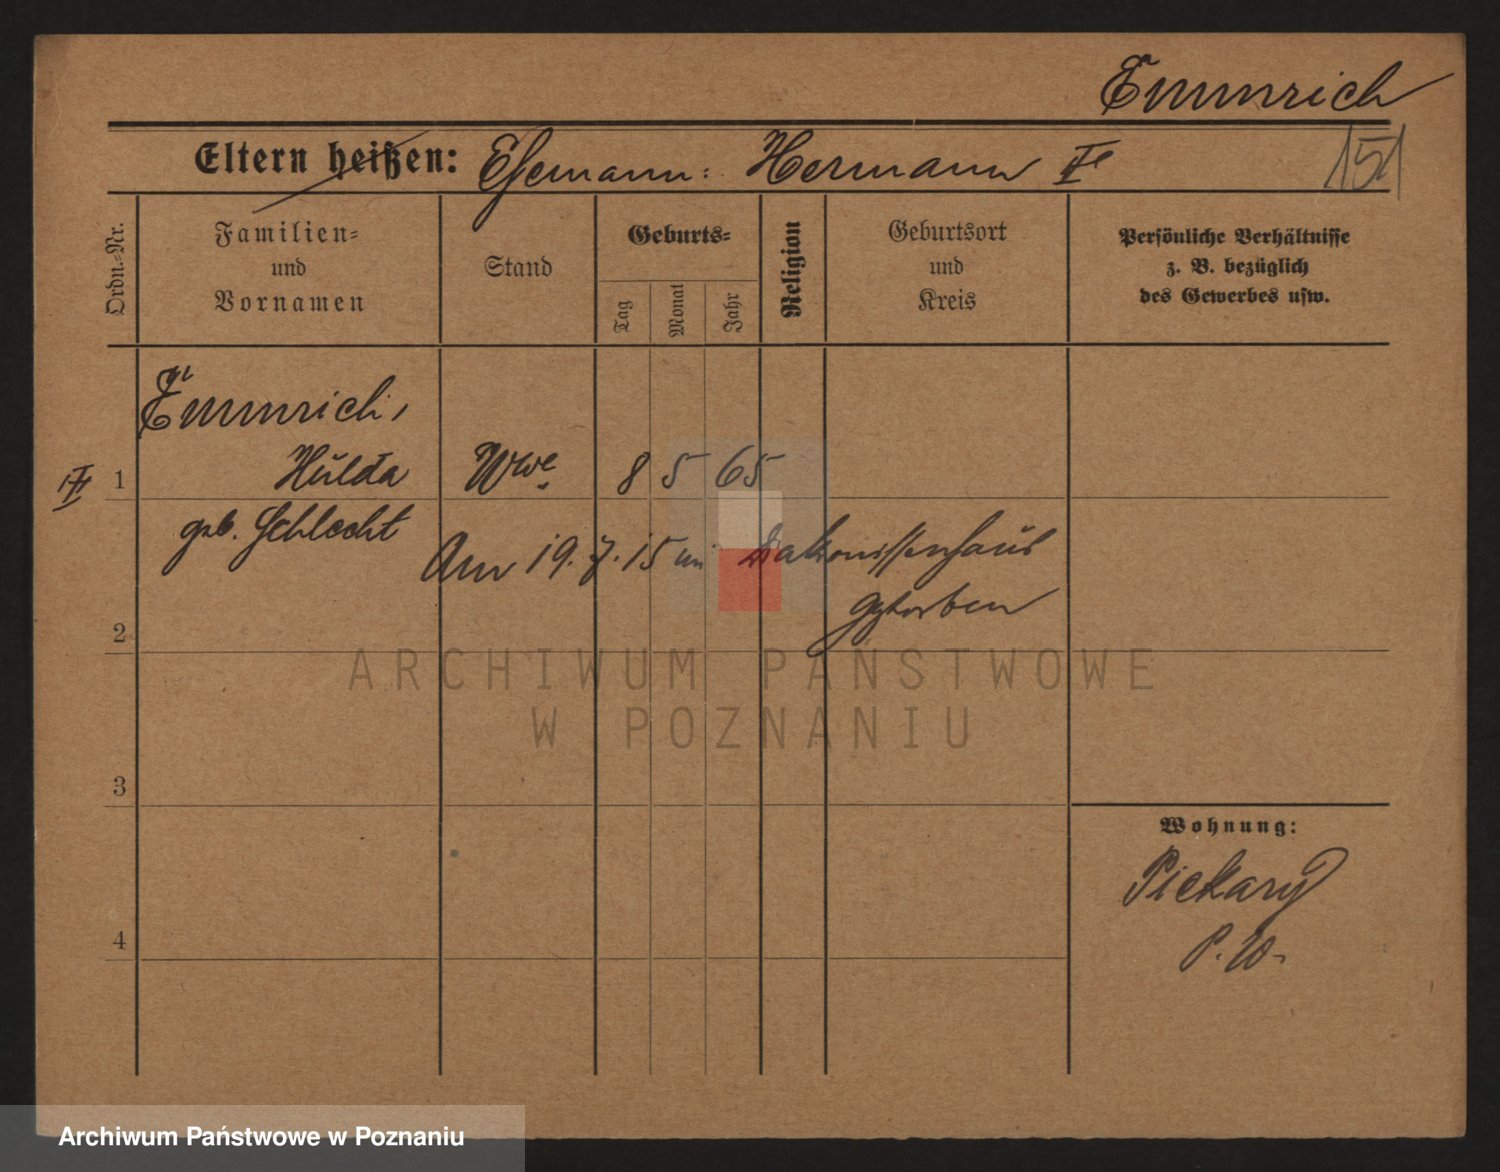 Emmrich
Eltern heißen: Ehemann: Hermann
151
Ordn.-Nr.
Familien-
und
Vornamen
Stand
Geburts-
Tag
Monat
Jahr
Religion
Geburtsort
und
Kreis
Persönliche Verhältnisse
z. B. bezüglich
des Gewerbes usw.
Emmrich,
1 Hulda Wwe 8 5 65
geb. Schlecht
Am 19. 7. 15 im Diakonissenhaus
gestorben
2
ARCHIWUM PAŃSTWOWE
W POZNANIU
3
Wohnung:
Pickary
P. W.
4
Archiwum Państwowe w Poznaniu